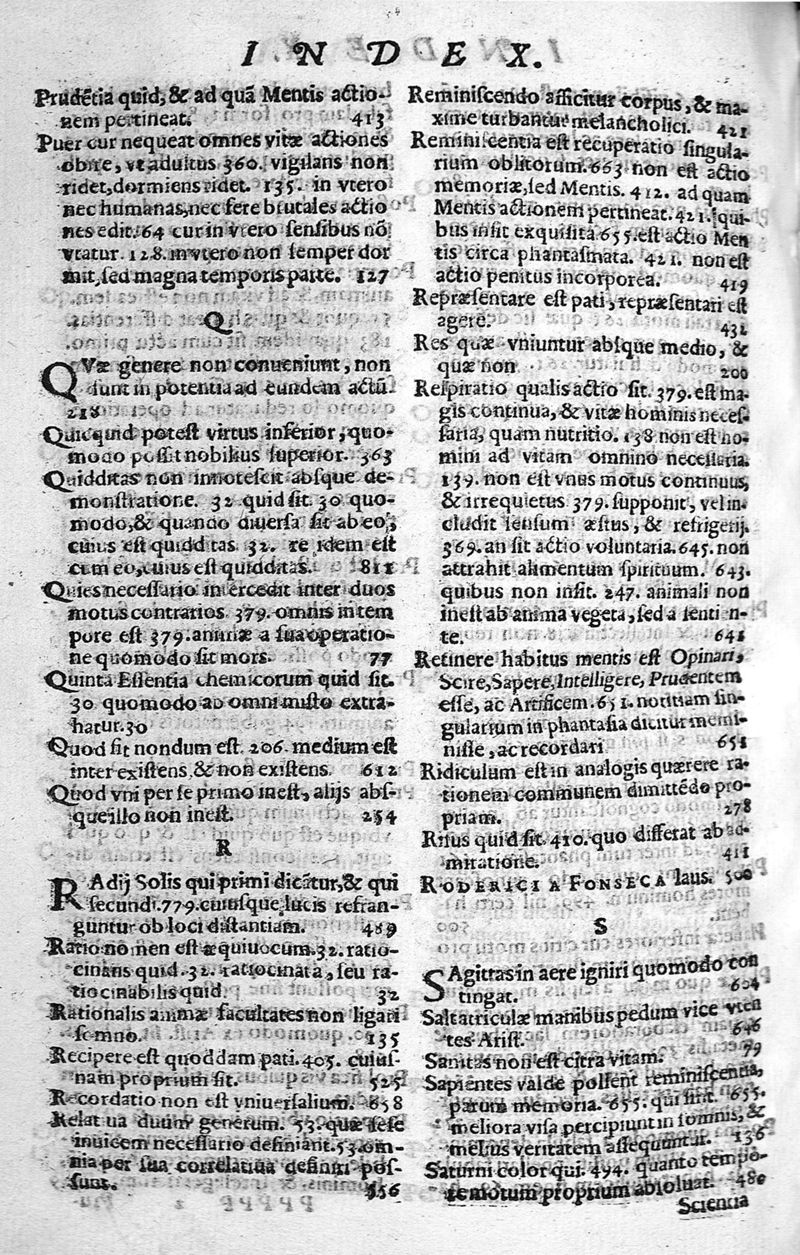 INDEX.
Prudẽtia quid, & ad quã Mentis actio-
nem pertineat. 413
Puer cur nequeat omnes vitæ actiones
obire, vt adultus 360. vigilans non
ridet, dormiens ridet. 135. in vtero
nec humanas, nec fere brutales actio
nes edit. 64 cur in vtero sensibus nõ
vtatur. 128. in vtero non semper dor
mit, sed magna temporis parte. 127
Q
QVæ genere non conueniunt, non
sunt in potentia ad eundem actũ.
218
Quicquid potest virtus inferior, quo-
modo possit nobilius superior. 363
Quidditas non innotescit absque de-
monstratione. 32 quid sit. 30 quo-
modo, & quando diuersa sit ab eo,
cuius est quidditas 32. re idem est
cum eo, cuius est quidditas. 811
Quies necessario intercedit inter duos
motus contrarios 379. omnis in tem
pore est 379. animæ a sua operatio-
ne quomodo sit mors. 77
Quinta Essentia chemicorum quid sit.
30 quomodo ab omni misto extra-
hatur. 30
Quod sit nondum est. 206. medium est
inter existens, & non existens. 612
Quod vni per se primo inest, alijs abs-
que illo non inest. 254
R
RAdij Solis qui primi dicãtur, & qui
secundi. 779. cuiusque lucis refran-
guntur ob loci distantiam. 489
Ratio nomen est æquiuocum. 32. ratio-
cinans quid. 32. ratiocinata, seu ra-
tiocinabilis quid. 32
Rationalis animæ facultates non ligari
somno. 135
Recipere est quoddam pati. 405. cuius-
nam proprium sit. 525
Recordatio non est vniuersalium. 658
Relatiua duum generum. 53. quæ sese
inuicem necessario definiant. 53. om-
nia per sua correlatiua definiri pos-
sunt. 556
Reminiscendo afficitur corpus, & ma-
xime turbantur melancholici. 421
Reminiscentia est recuperatio singula-
rium oblitorum. 663 non est actio
memoriæ, sed Mentis. 412. ad quam
Mentis actionem pertineat. 421. qui-
bus insit exquisita 655. est actio Men
tis circa phantasmata. 421. non est
actio penitus incorporea. 419
Repræsentare est pati, repræsentari est
agere. 432
Res quæ vniuntur absque medio, &
quæ non 200
Respiratio qualis actio sit. 379. est ma-
gis continua, & vitæ hominis neces-
saria, quam nutritio. 138 non est ho-
mini ad vitam omnino necessaria.
139. non est vnus motus continuus,
& irrequietus 379. supponit, vel in-
cludit sensum æstus, & refrigerij.
369. an sit actio voluntaria. 645. non
attrahit alimentum spirituum. 643.
quibus non insit. 247. animali non
inest ab anima vegeta, sed a sentien-
te. 641
Retinere habitus mentis est Opinari,
Scire, Sapere, Intelligere, Prudentem
esse, ac Artificem. 651. notitiam sin-
gularium in phantasia dicitur memi-
nisse, ac recordari 651
Ridiculum est in analogis quærere ra-
tionem communem dimittẽdo pro-
priam. 278
Risus quid sit. 410. quo differat ab ad-
miratione. 411
RODERICI A FONSECA laus. 500
S
SAgittas in aere igniri quomodo con
tingat. 604
Saltatriculæ manibus pedum vice vten
tes Arist. 646
Sanitas non est citra vitam. 79
Sapientes valde pollent reminiscentia,
parum memoria. 655. qui sint. 655.
meliora visa percipiunt in somnis, &
melius veritatem assequuntur. 136
Saturni color qui. 494. quanto tempo-
re motum proprium absoluat. 480
Scientia